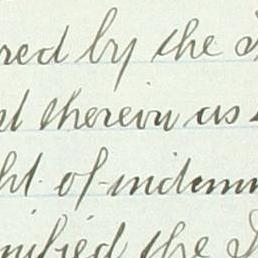 red by the
therein as
ht of indemn
nified the